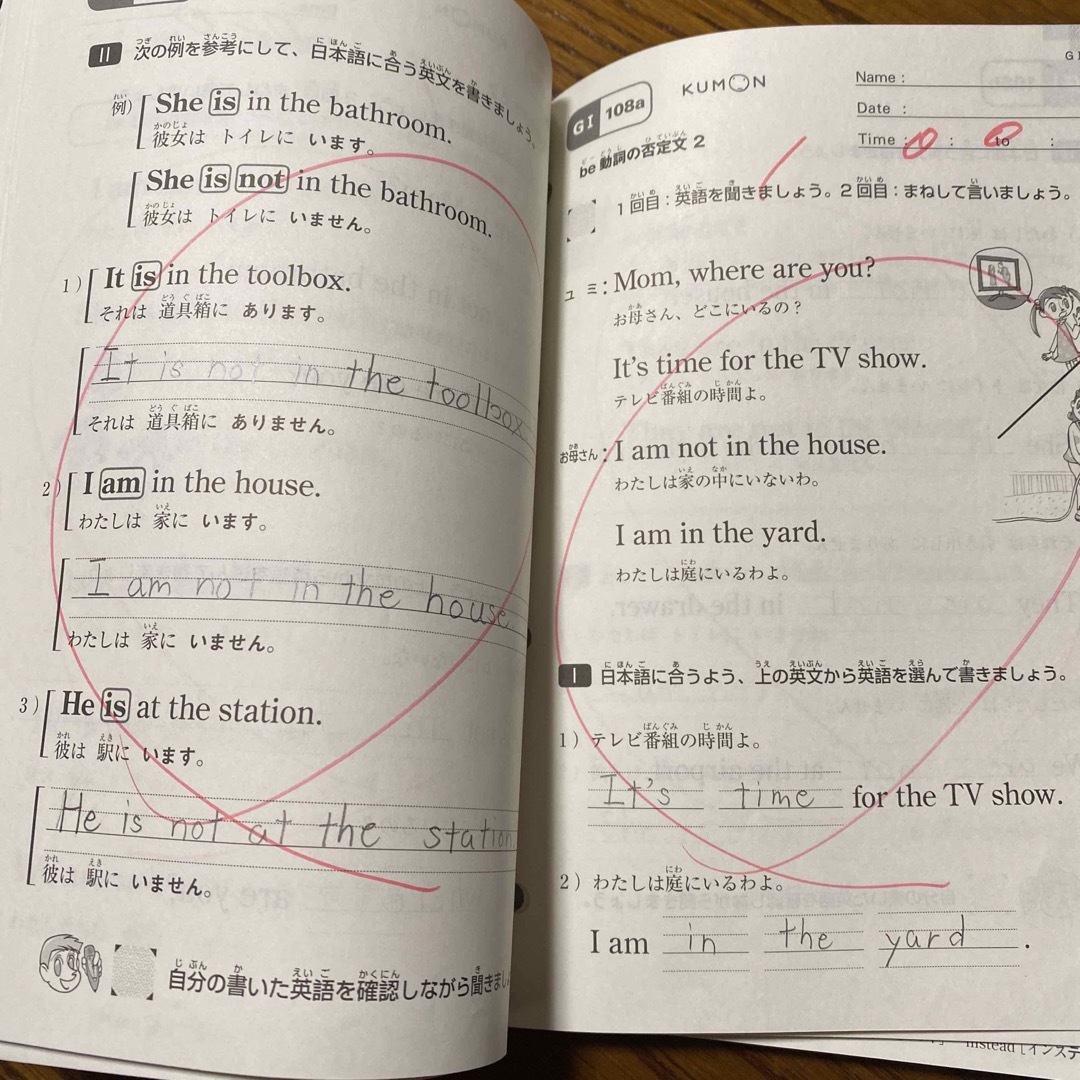 II 次の例を参考にして、日本語に合う英文を書きましょう。
例) She is in the bathroom.
彼女は トイレに います。
She is not in the bathroom.
彼女は トイレに いません。
1) It is in the toolbox.
それは 道具箱に あります。
It is not in the toolbox
それは 道具箱に ありません。
2) I am in the house.
わたしは 家に います。
I am not in the house
わたしは 家に いません。
3) He is at the station.
彼は 駅に います。
He is not at the station
彼は 駅に いません。
自分の書いた英語を確認しながら聞きまし
GI 108a
KUMON
Name :
Date :
Time : 0 : 0 to :
be動詞の否定文 2
1回目：英語を聞きましょう。2回目：まねして言いましょう。
ユミ : Mom, where are you?
お母さん、どこにいるの？
It's time for the TV show.
テレビ番組の時間よ。
お母さん : I am not in the house.
わたしは家の中にいないわ。
I am in the yard.
わたしは庭にいるわよ。
I 日本語に合うよう、上の英文から英語を選んで書きましょう。
1) テレビ番組の時間よ。
It's time for the TV show.
2) わたしは庭にいるわよ。
I am in the yard.
instead [インステ